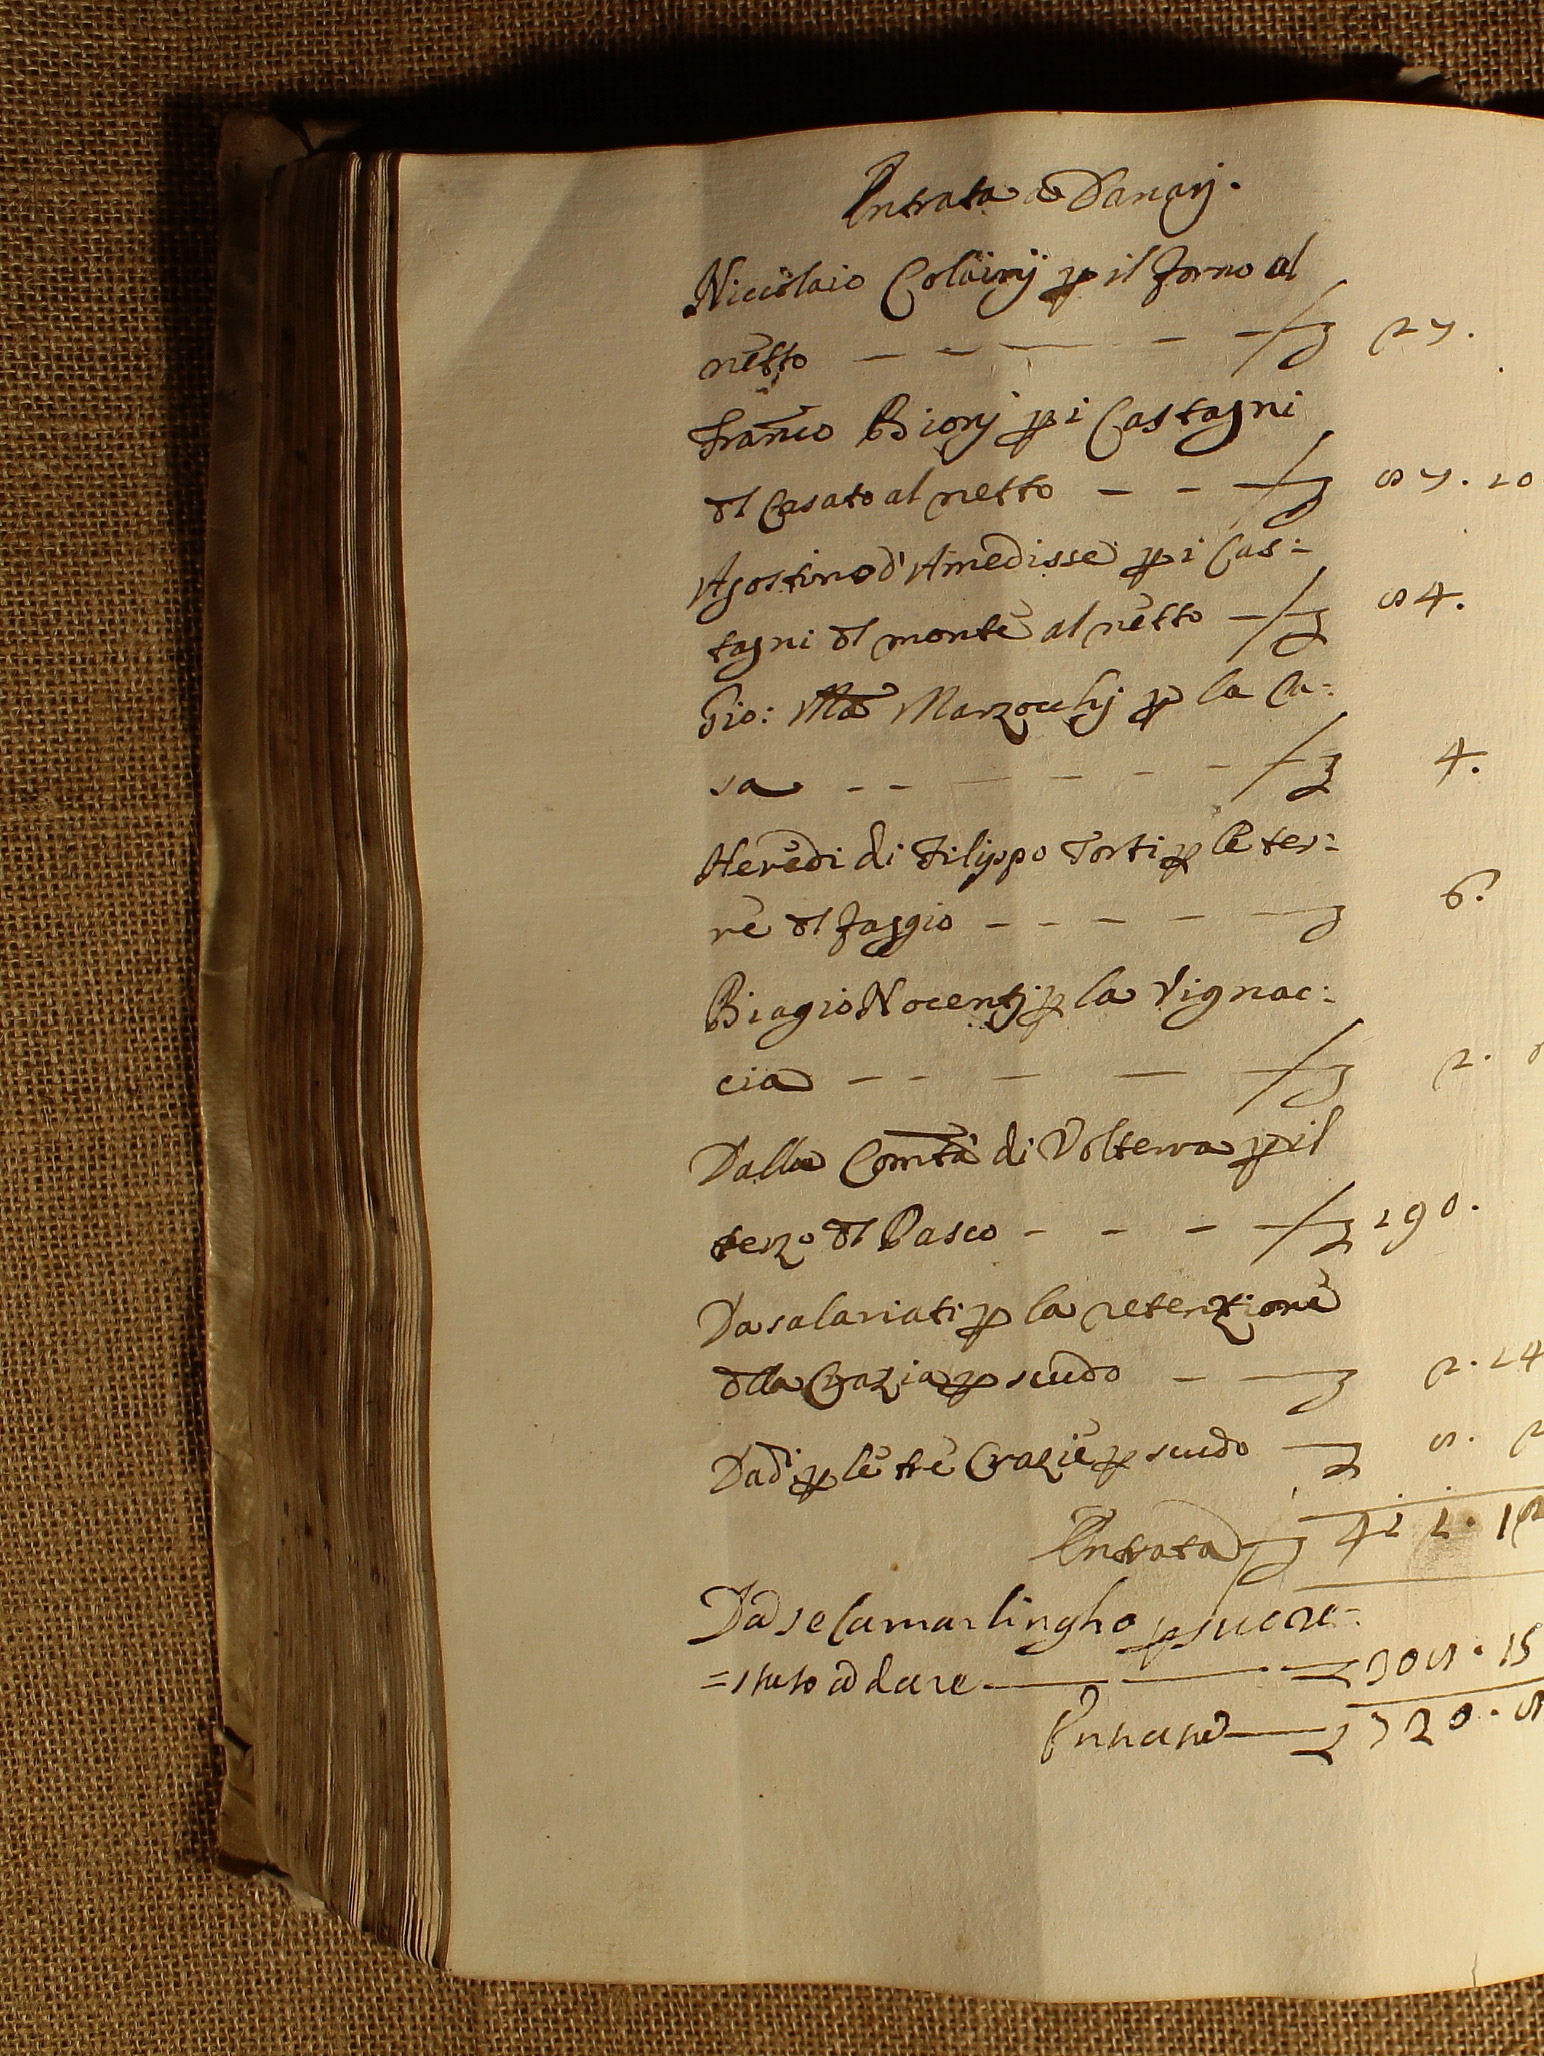 Entrata a Danarj.
Niccolaio p il forno al
netto — — — — £ 27.
Franco Biorj p i Castagni
dl Casato al netto — — — £ 87. 10
Agostino d'Amedisse p i Cas:
tagni dl monte al netto — £ 84.
Gio: Ma Marzocchj p la Ca:
sa — — — — — — £ 4.
Heredi di Filippo Torti p le ter:
re dl faggio — — — — — £ 6.
Biagio Nocentj p la Vignac:
cia — — — — — £ 2.
Dalla Comta di Volterra p il
terzo dl Pasco — — — — £ 190.
Da salariati p la retenzione
dlla Crazia p scudo — — £ 2. 14
Da di p le tre Crazie p scudo — £ 8.
Entrata £ 411. 12
Da se Camarlingho p suo re=
=stato a dare — — — £ 308. 15
£ 720. 8